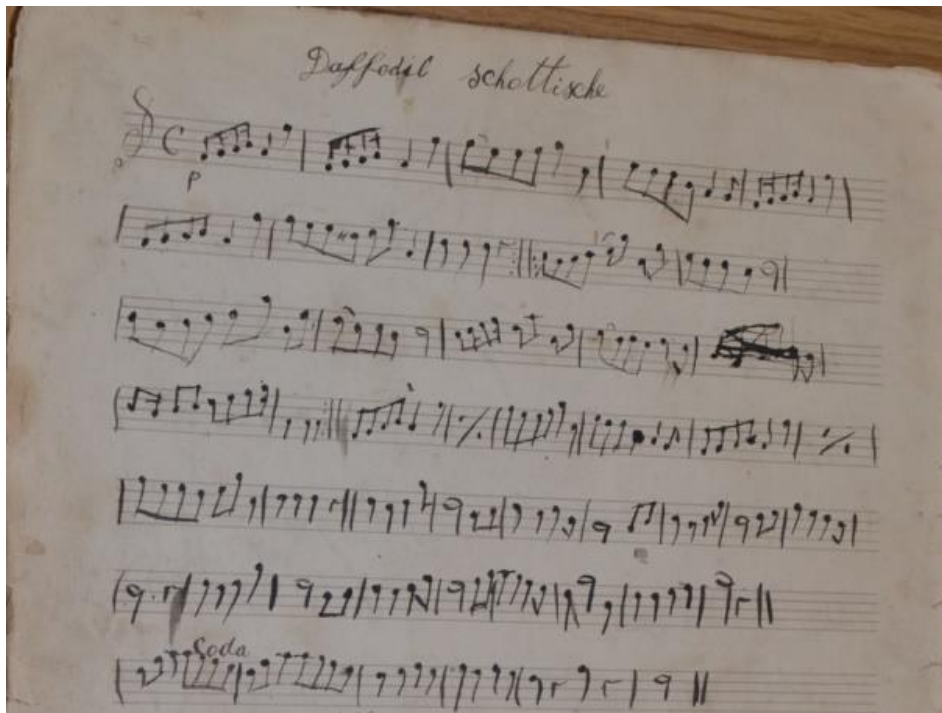 Daffodil schottische
C
P
Soda